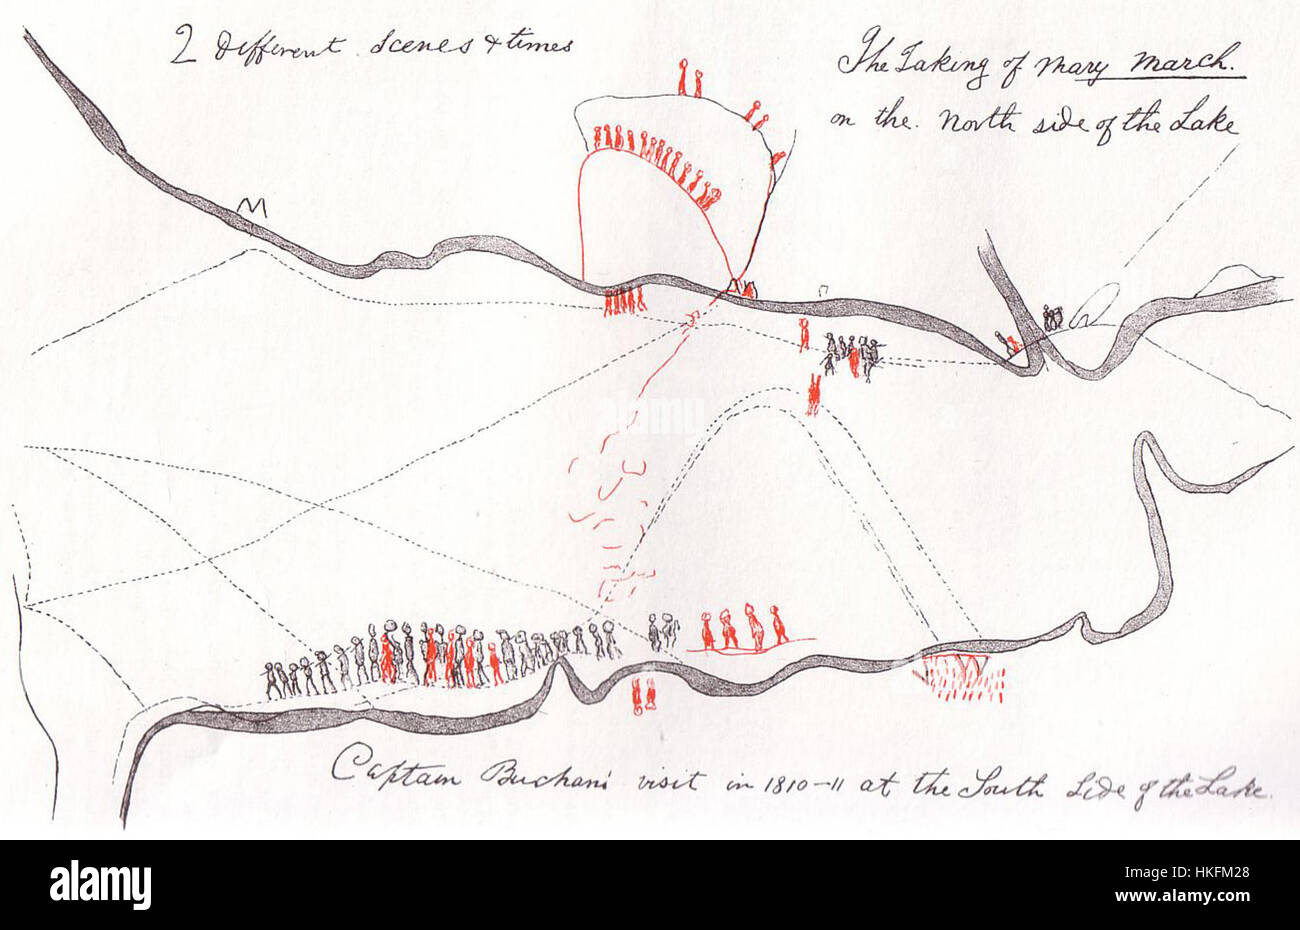 2 different scenes & times
The Taking of Mary March.
on the North side of the Lake
Captain Buchan's visit in 1810-11 at the South side of the Lake.
alamy
alamy
Image ID: HKFM28
www.alamy.com